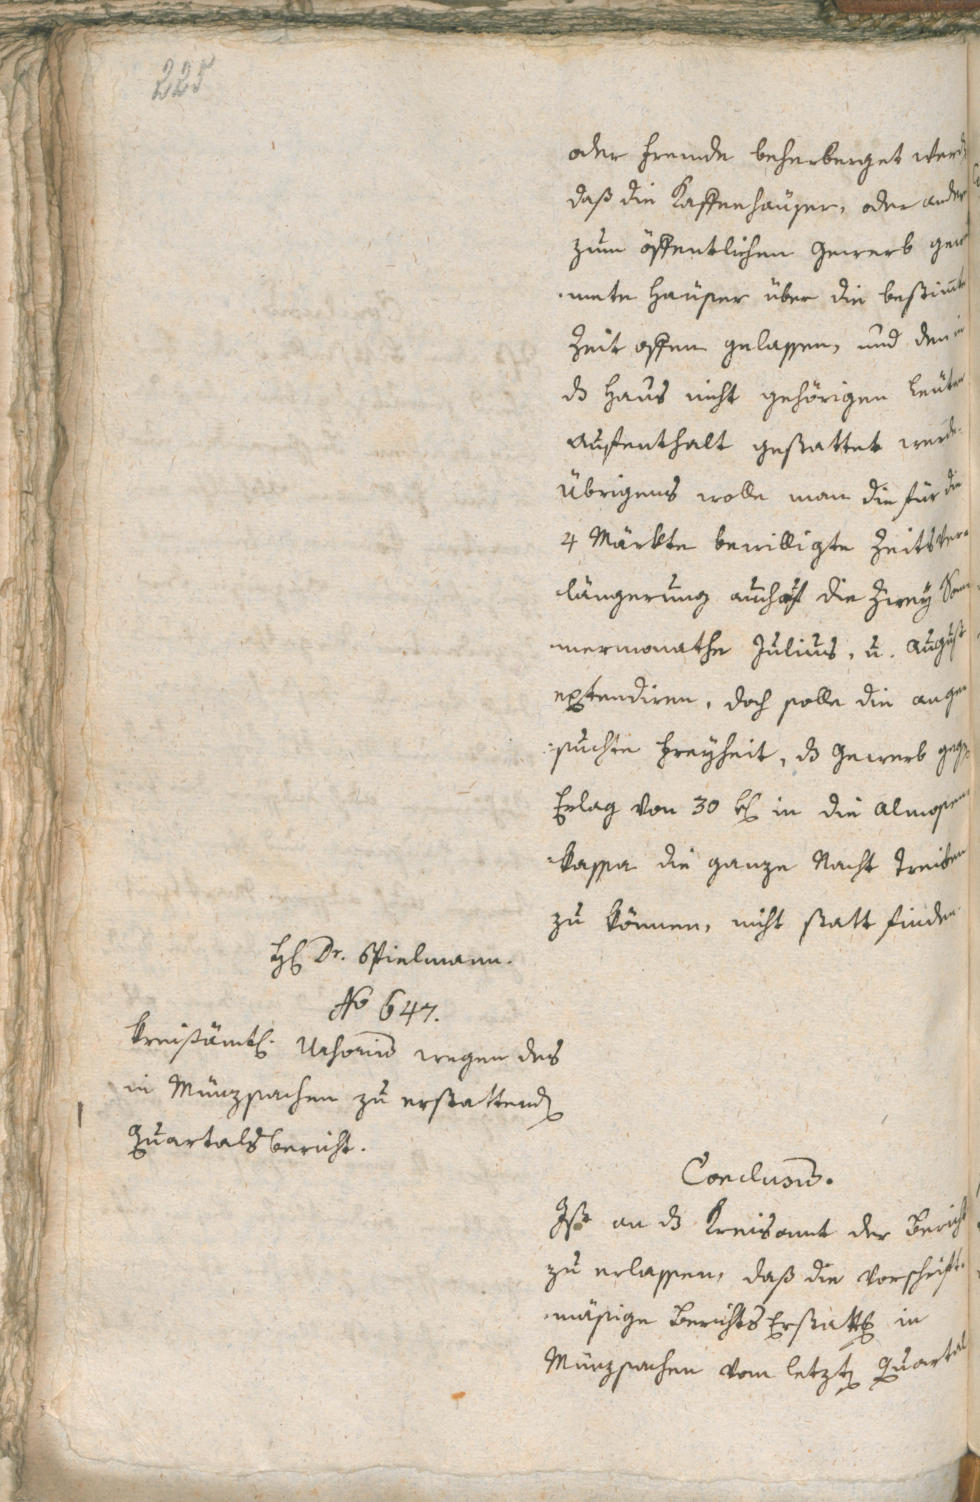 225
oder Fremde beherberget werd
daß die Kaffeehäuser, oder ander
zum öffentlichen Gewerb gew
mete Häuser über die bestimte
Zeit offen gelassen, und den in
ds Haus nicht gehörigen Leüten
Aufenthalt gestattet werde.
Übrigens wolle man die für die
4 Märkte bewilligte Zeitsver=
längerung auch auf die Zwey Som
mermonathe Julius, u. August
extendiren, doch solle die ange
suchte Freyheit, ds Gewerb gegen
Erlag von 30 in die Almosen
kassa die ganze Nacht treiben
zu können, nicht statt finden.
H Dr. Spielmann.
No 647.
Kreisämtl. wegen des
in Münzsachen zu erstattend
Quartalsbericht.
Conclusum.
Ist an ds Kreisamt der Bericht
zu erlassen, daß die vorschrift=
mäsige Berichts Erstattg in
Münzsachen vom letzt Quartal